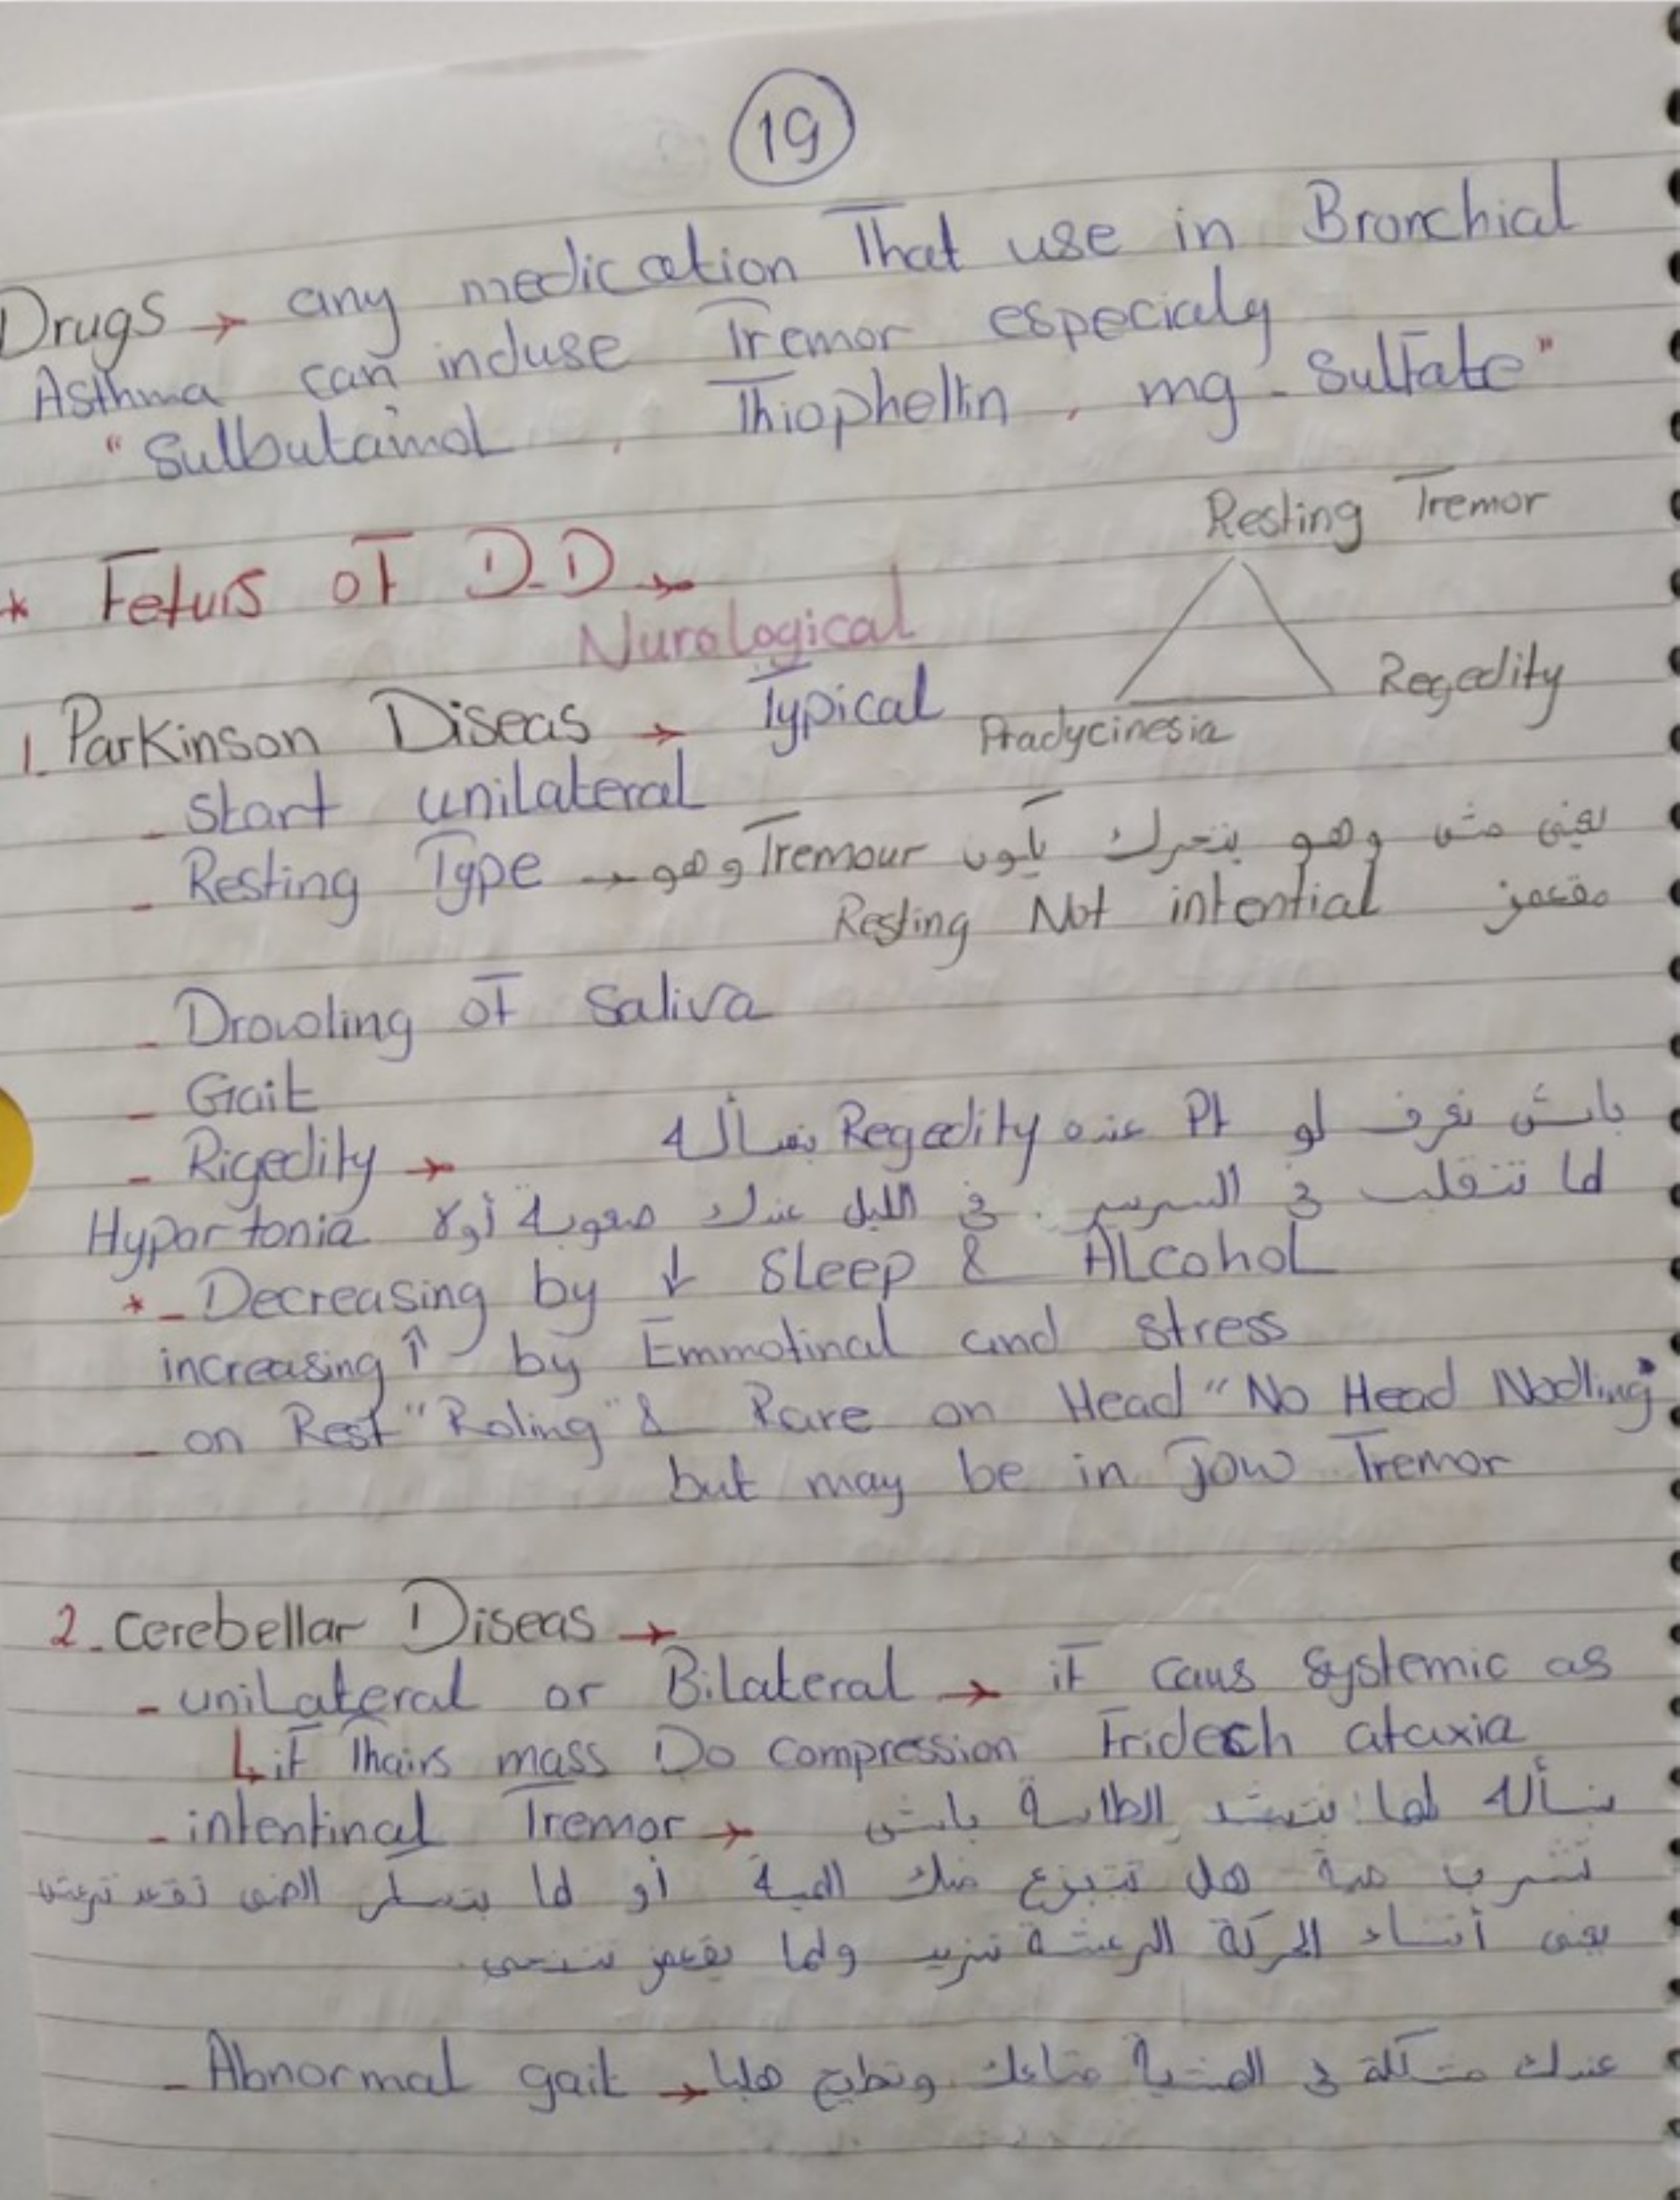 19
Drugs → any medication That use in Bronchial
Asthma can induse Tremor especialy
"Sulbutamol , Thiophellin , mg - Sulfate"
Resting Tremor
* Feturs of D.D →
Nurological
Regedity
1. Parkinson Diseas → Typical
Bradycinesia
- Start unilateral
- Resting Type → وهو Tremour يعني مش وهو يتحرك يكون
Resting Not intential مقعمز
- Drowling of Saliva
- Gait
- Rigedity → باش نعرف لو Pt عنده Regedity نسأله
Hypertonia لما تتقلب في السرير في الليل عندك صعوبة أولا
* - Decreasing by ↓ Sleep & ALcohol
increasing ↑ by Emmotinal and stress
- on Rest "Roling" & Rare on Head "No Head Nodling"
but may be in Jow Tremor
2. Cerebellar Diseas →
- uniLateral or BiLateral → if caus Systemic as
↳ if Thairs mass Do compression Fridech ataxia
- intentinal Tremor → نسأله لما تنشد الطاسة باش
تشرب مية هل تتبزع منك المية أو لما بتسكر الضي تقعد ترعش
يعني أثناء الحركة الرعشة تزيد ولما يقعمز تتنحى
- Abnormal gait → عندك مشكلة في المشية متاعك وتطيح هلبا